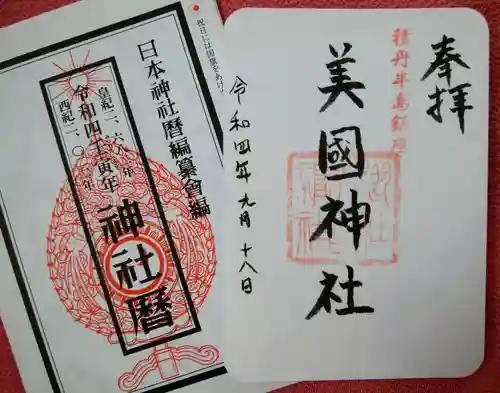 奉拝
積丹半島鎮座
美國神社
令和四年九月十八日
祝日には国旗をあげ
日本神社暦編纂會編
皇紀二、六八 年
令和四壬寅年
西紀二、〇 年
神社暦